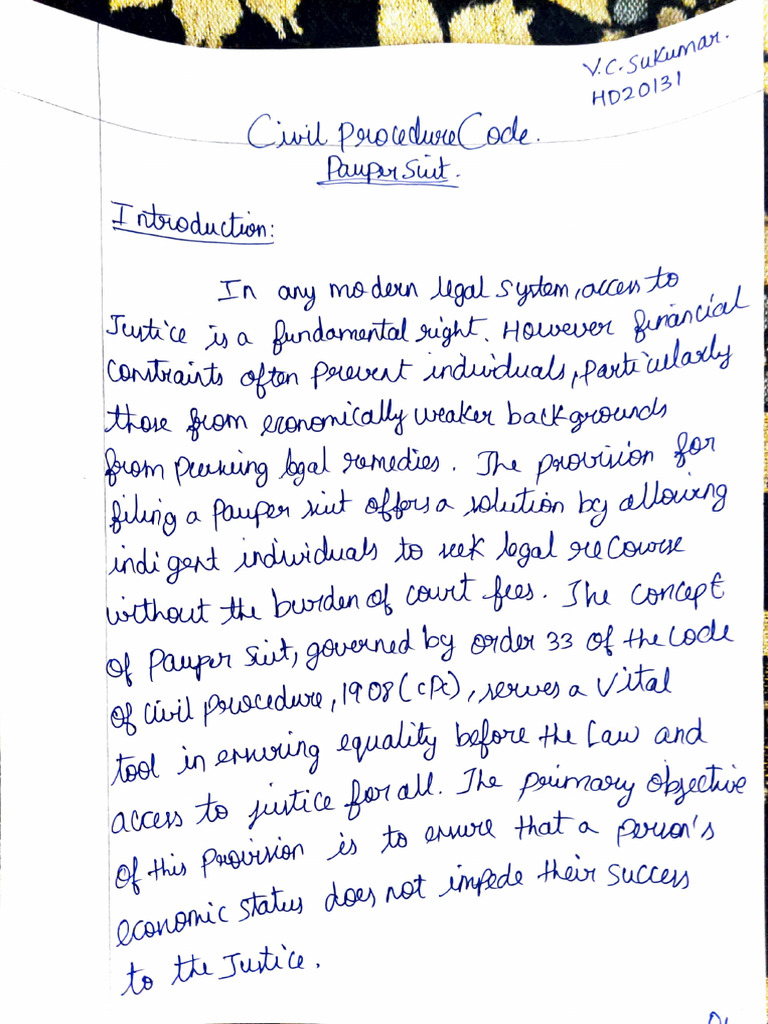 V.C. Sukumar.
HD20131
Civil Procedure Code.
Pauper Suit.
Introduction:
In any modern legal system, access to
Justice is a fundamental right. However financial
constraints often prevent individuals, particularly
those from economically weaker backgrounds
from pursuing legal remedies. The provision for
filing a pauper suit offers a solution by allowing
indigent individuals to seek legal recourse
without the burden of court fees. The concept
of Pauper Suit, governed by order 33 of the Code
of Civil Procedure, 1908 (CPC), serves a vital
tool in ensuring equality before the Law and
access to justice for all. The primary objective
of this Provision is to ensure that a person's
economic status does not impede their success
to the Justice.